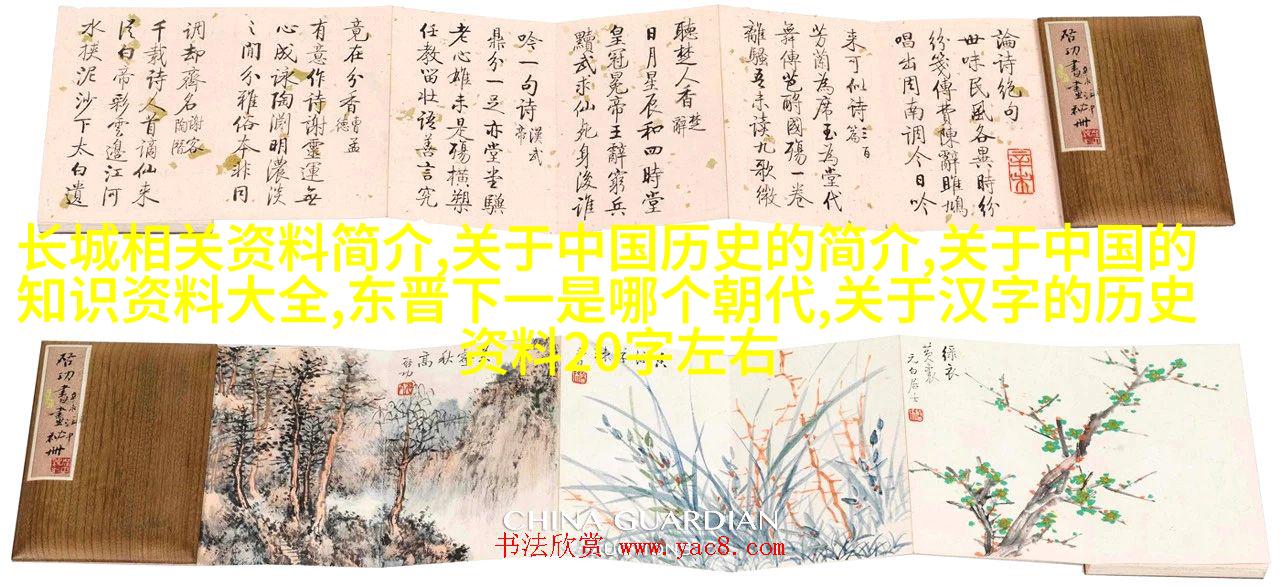 启功書畫袖冊
論詩絕句
世味民風各異時紛
紛箋傳費陳辭雎鳩
唱出周南調今日吟
來可似詩 三百篇
芳蘭為席玉為堂代
舞傳芭酹國殤一卷
離騷吾未讀九歌微
聽楚人香 楚辭
日月星辰和四時堂
皇冠冕帝王辭窮兵
黷武求仙死身後誰
吟一句詩 漢武帝
鼎分一足亦堂堂驥
老心雄未是殤橫槊
任教留壯語善言究
竟在分香 曹孟德
有意作詩謝靈運無
心成詠陶淵明濃淡
之間分雅俗本非同
調却齊名 謝客 陶潛
千載詩人首謫仙来
從白帝彩雲邊江河
水挾泥沙下太白遺
长城相关资料简介,关于中国历史的简介,关于中国的
知识资料大全,东晋下一是哪个朝代,关于汉字的历史
资料20字左右
綠衣
元白居士
秋高
启功
启功書畫袖冊
CHINA GUARDIAN
书法欣赏 www.yac8.com